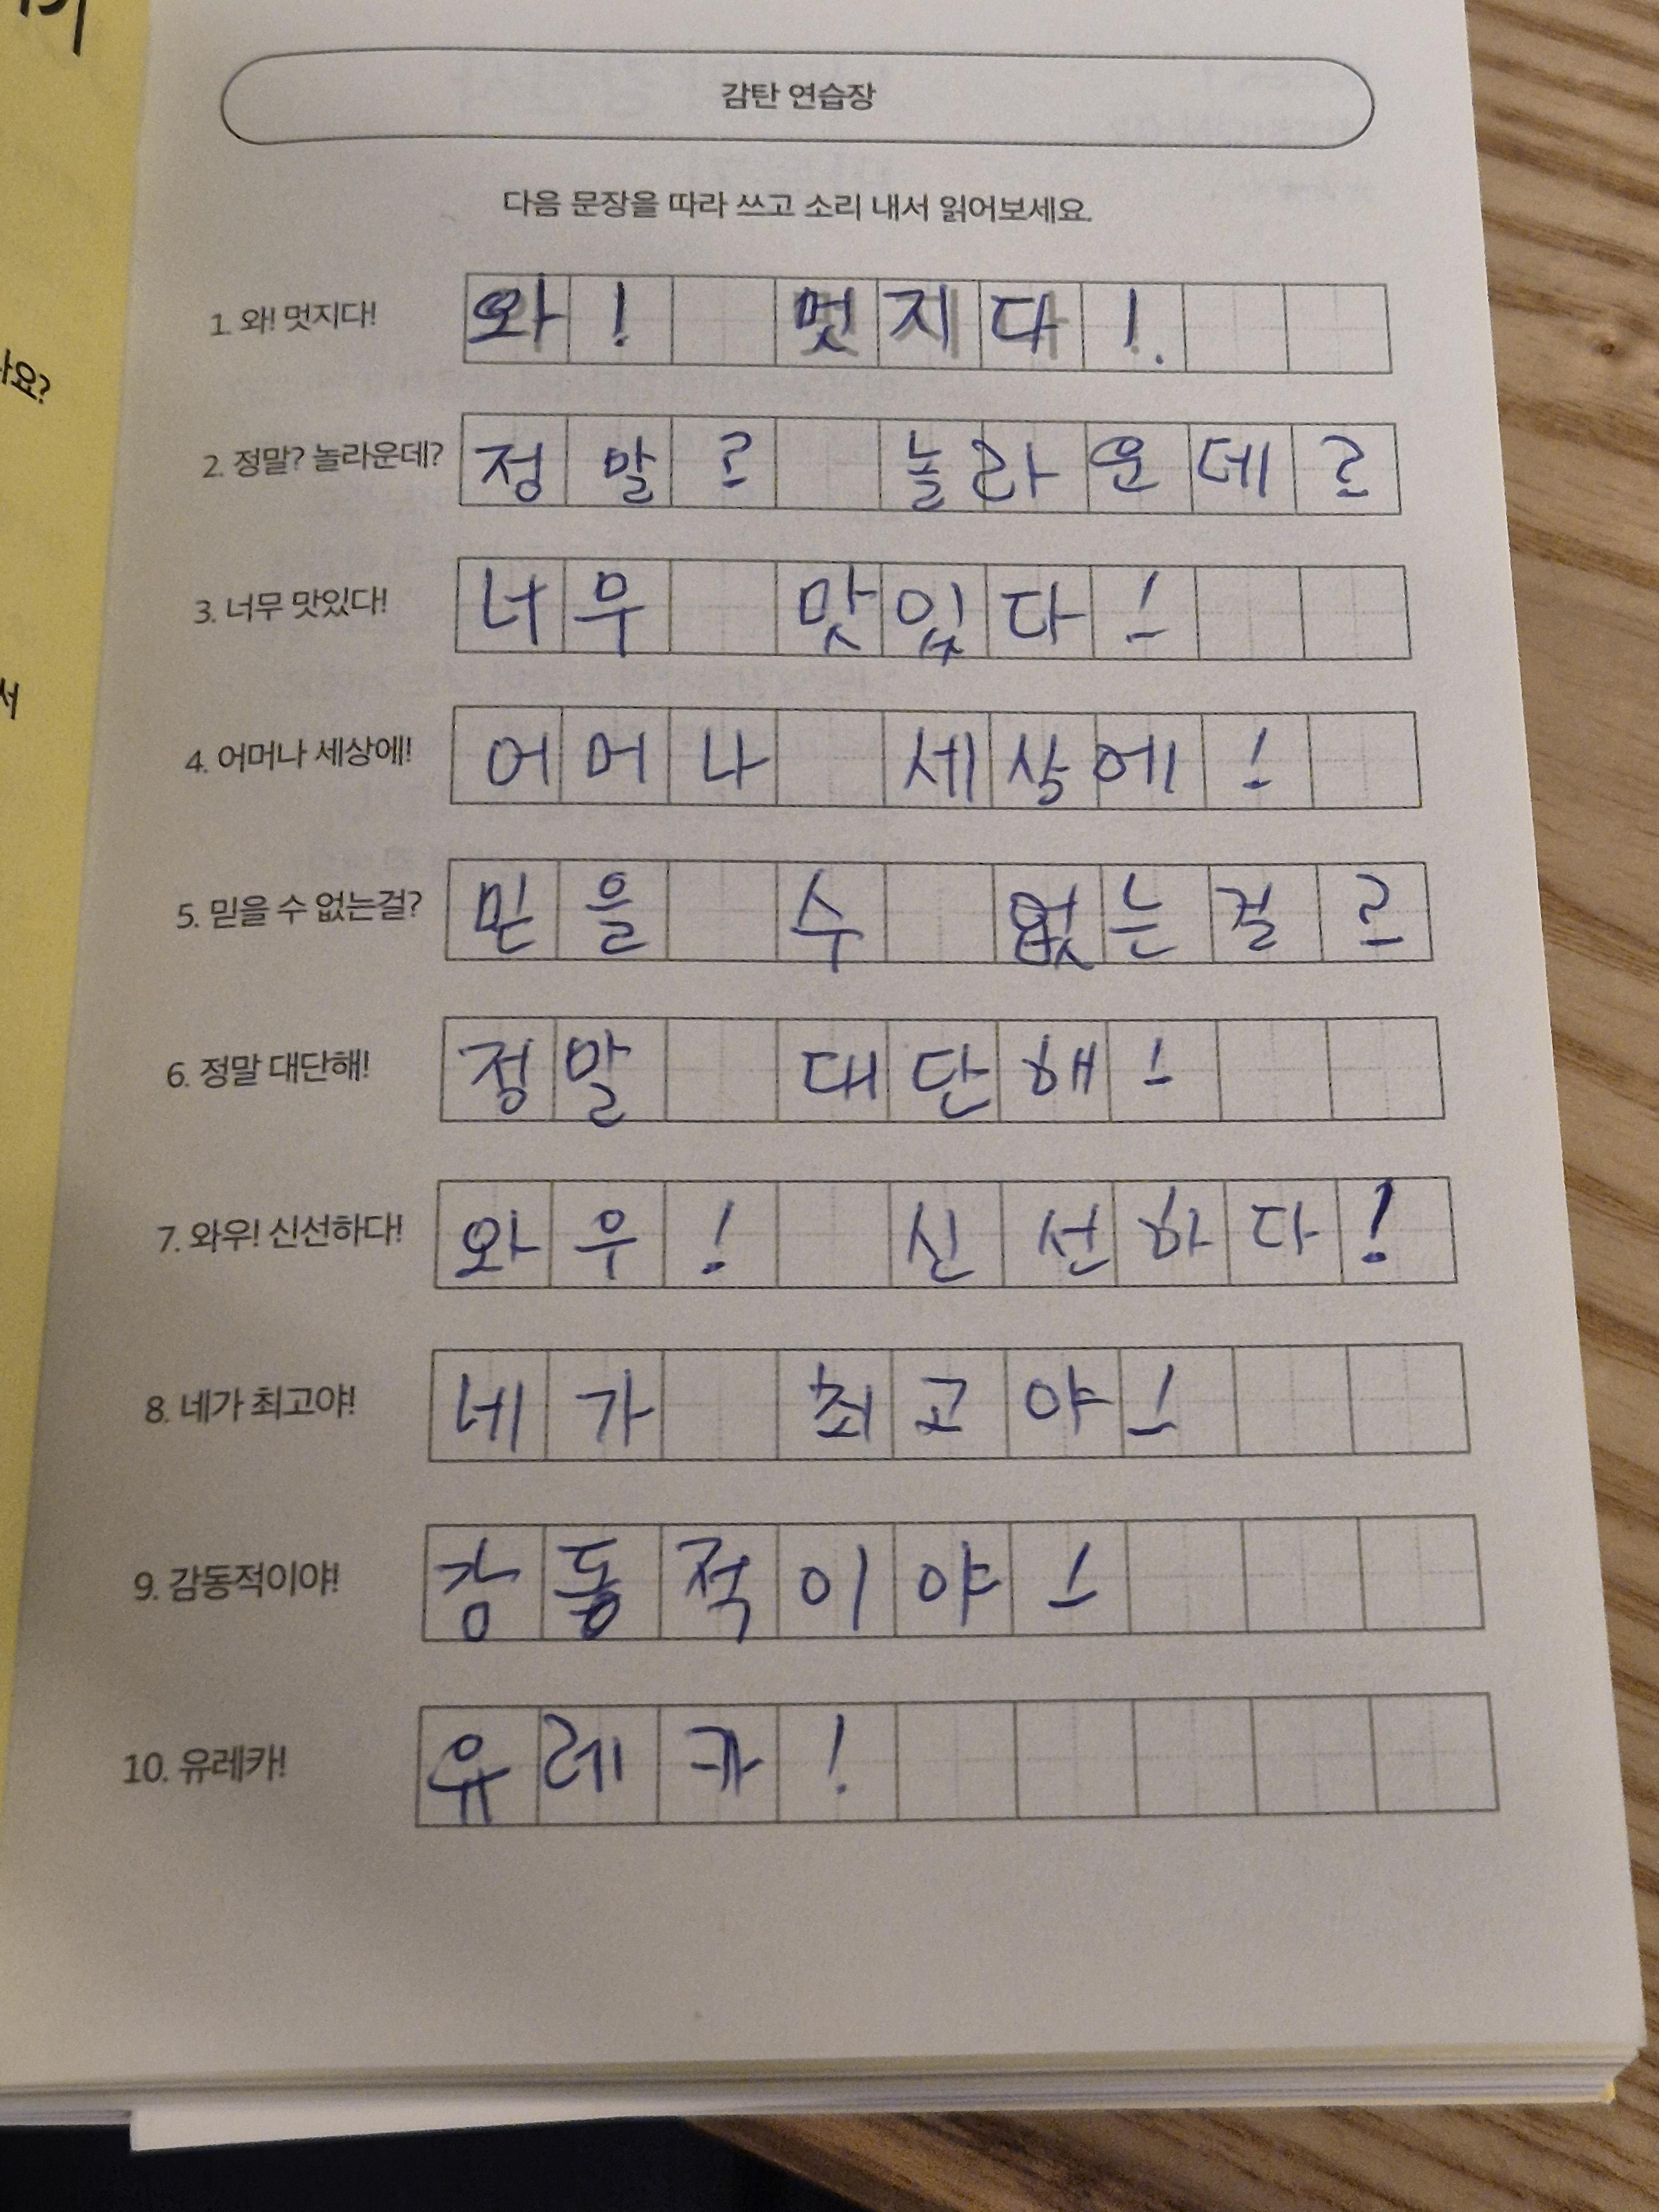 감탄 연습장
다음 문장을 따라 쓰고 소리 내서 읽어보세요.
1. 와! 멋지다! 와! 멋지다!
2. 정말? 놀라운데? 정말? 놀라운데?
3. 너무 맛있다! 너무 맛있다!
4. 어머나 세상에! 어머나 세상에!
5. 믿을 수 없는걸? 믿을 수 없는걸?
6. 정말 대단해! 정말 대단해!
7. 와우! 신선하다! 와우! 신선하다!
8. 네가 최고야! 네가 최고야!
9. 감동적이야! 감동적이야!
10. 유레카! 유레카!